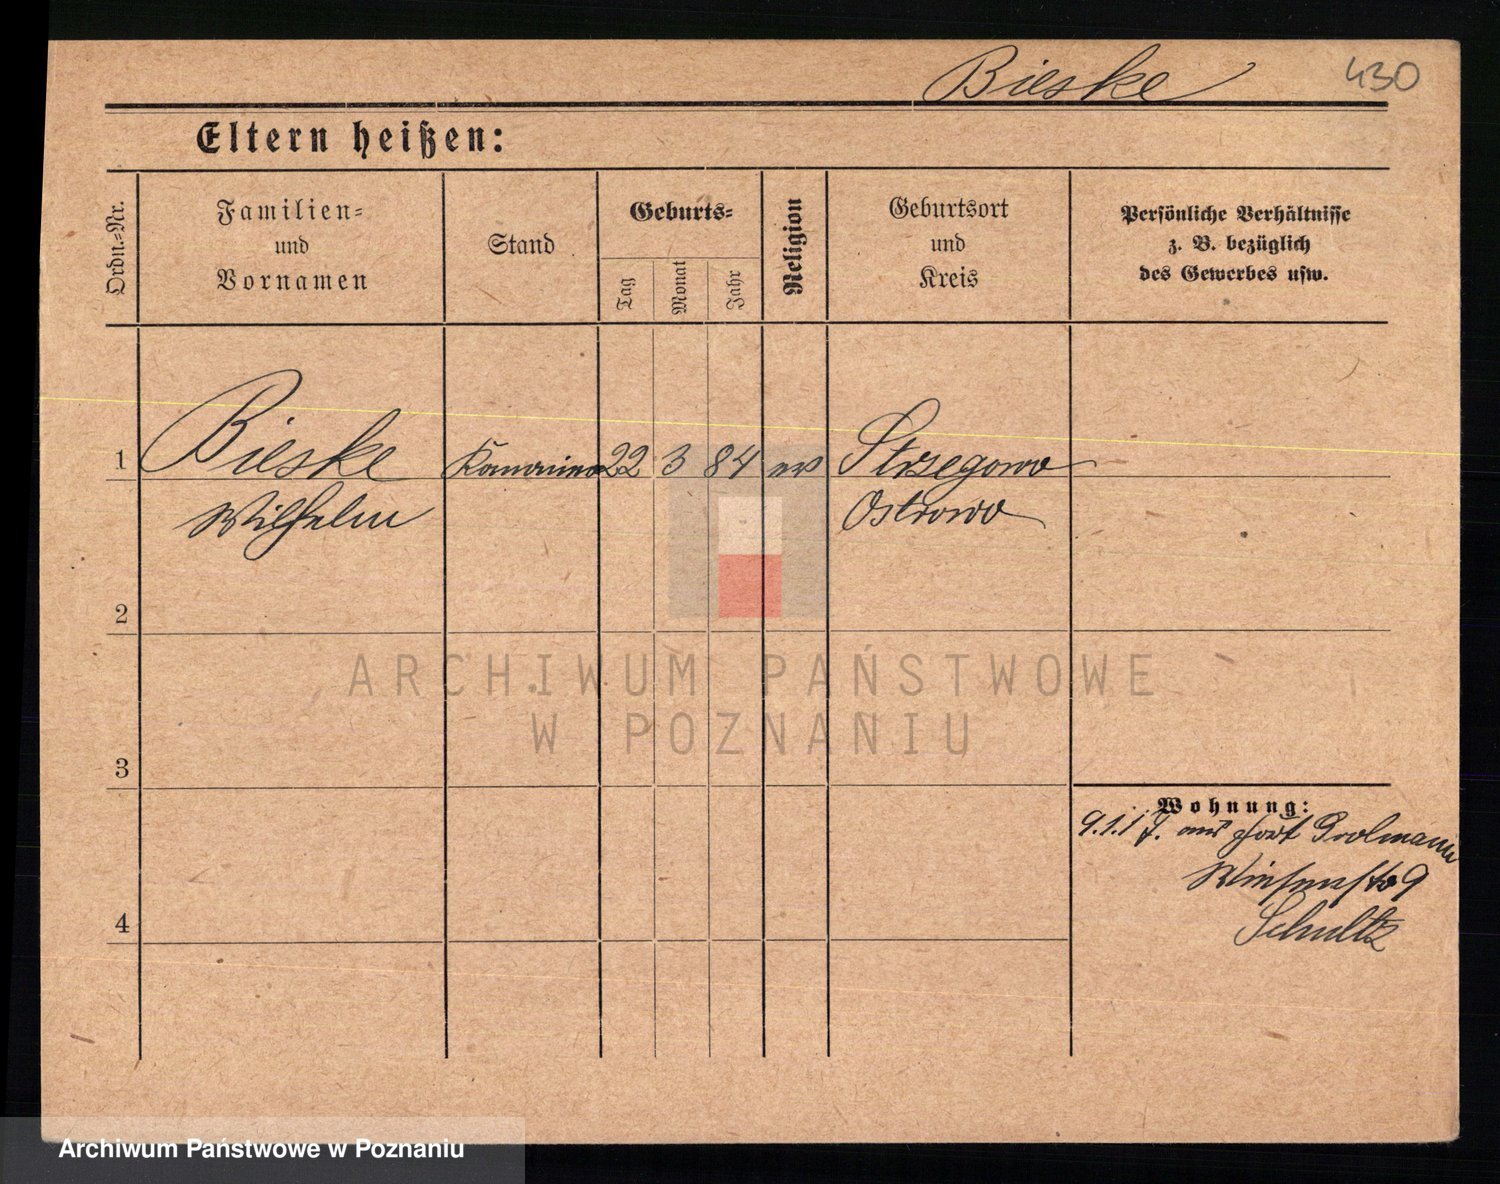 Bieske
430
Eltern heißen:
Ordn.-Nr.
Familien-
und
Vornamen
Stand
Geburts-
Tag
Monat
Jahr
Religion
Geburtsort
und
Kreis
Persönliche Verhältnisse
z. B. bezüglich
des Gewerbes usw.
1
Bieske
22
3
84
ev
Strzegowo
Wilhelm
Ostrowo
2
ARCHIWUM PAŃSTWOWE
W POZNANIU
3
Wohnung:
9.1.17. aus Fort Grolmann
9
Schultz
4
Archiwum Państwowe w Poznaniu